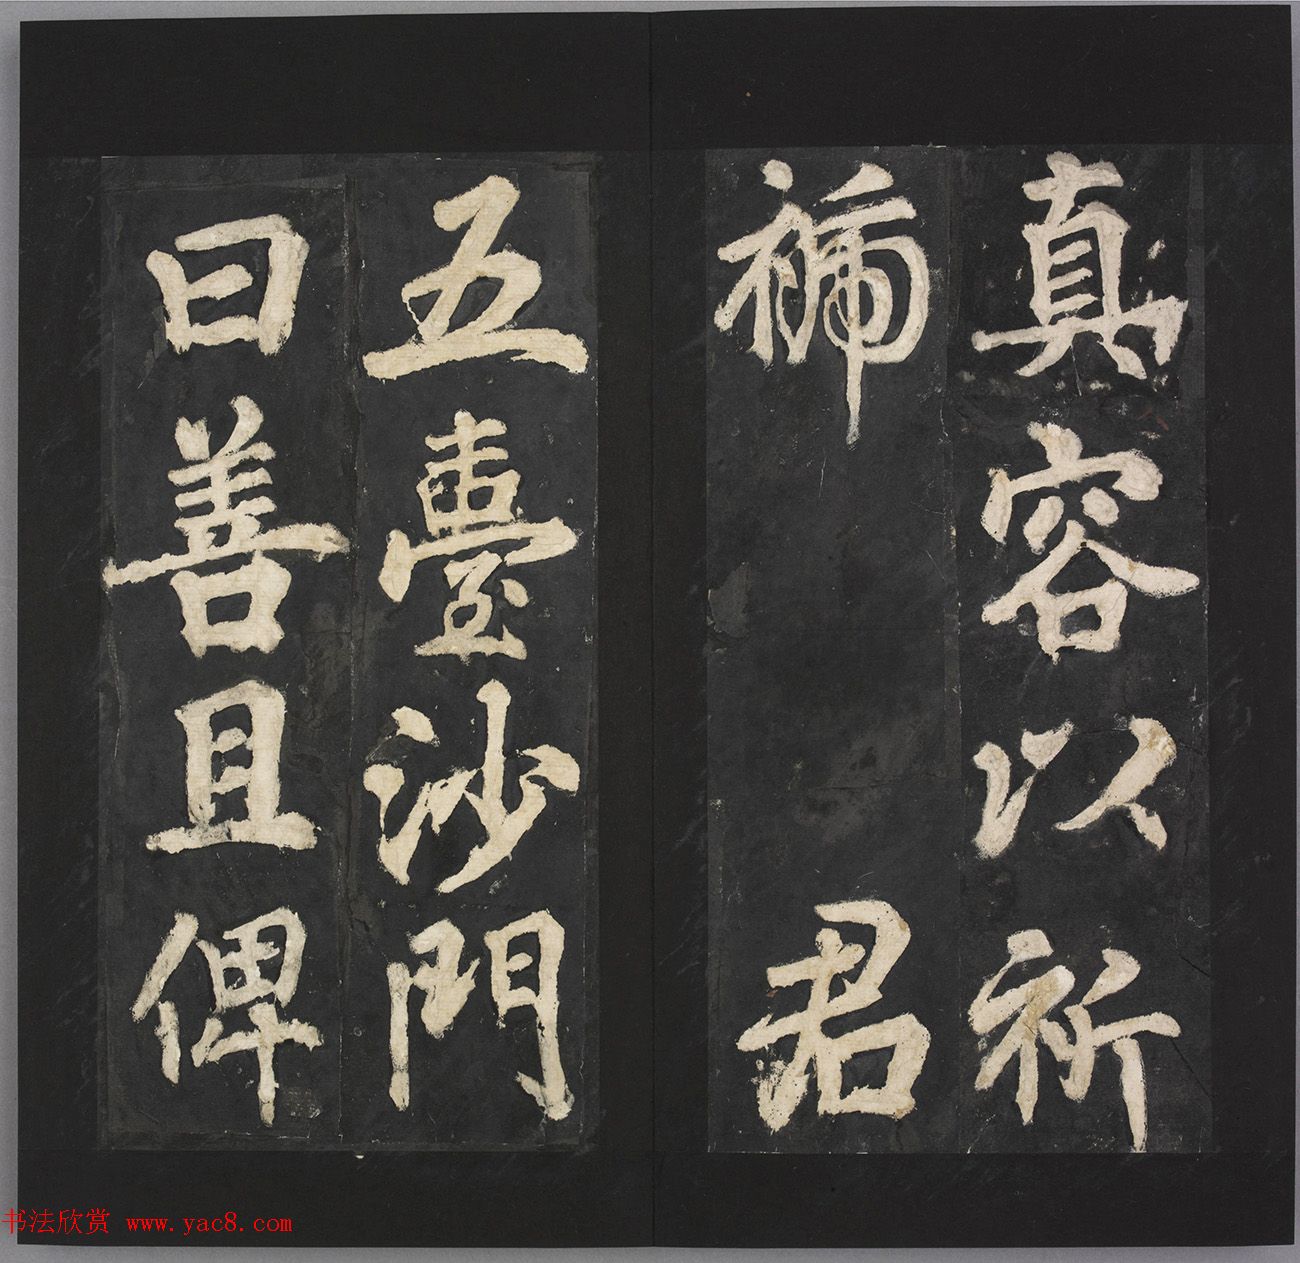 真容以祈
君
五臺沙門
曰善且俾
书法欣赏 www.yac8.com